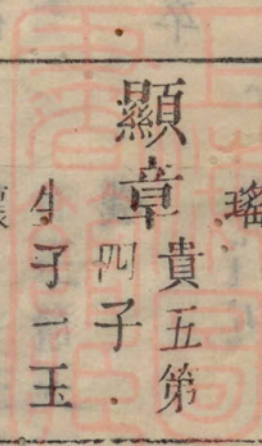 瑤
顯章
貴五第
四子
生子一玉